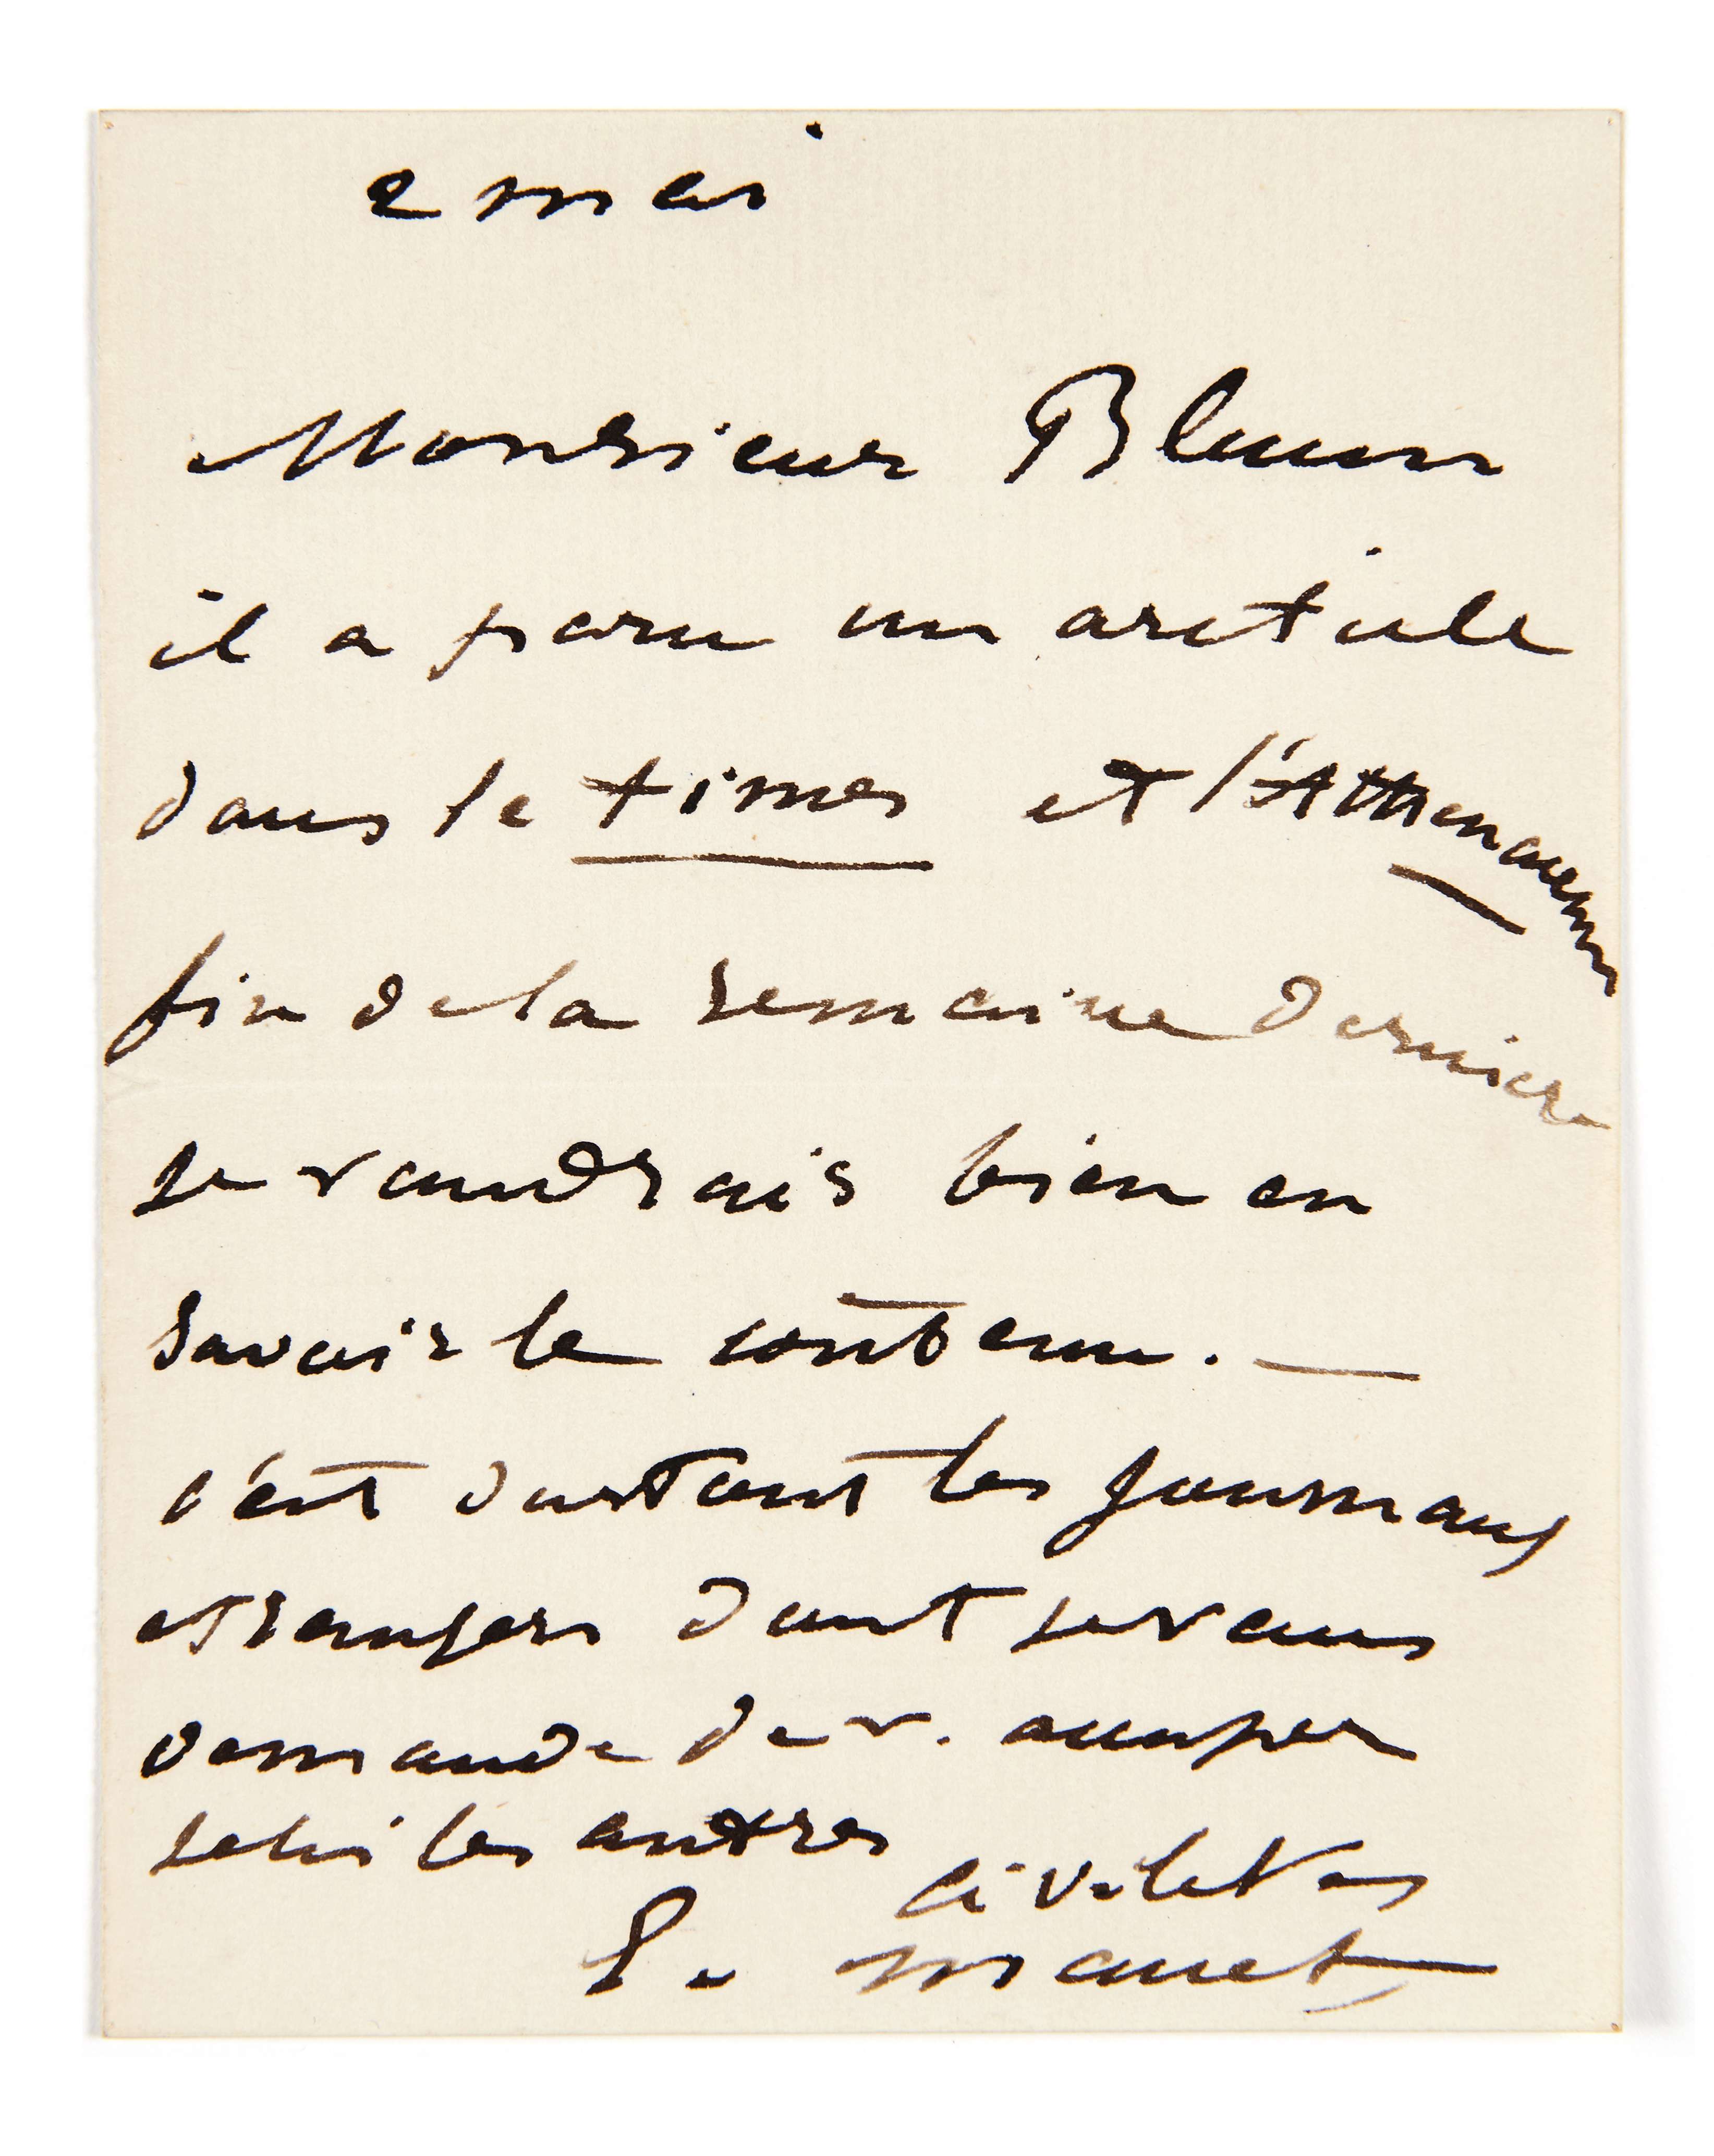 2 mai
Monsieur Blemm
il a paru un article
dans le times et l'Athenaeum
fin de la semaine derniere
je voudrais bien en
savoir le contenu. —
c'est surtout les journaux
etrangers dont je vous
demande de v. occuper
je lis les autres
civilites
E. Manet